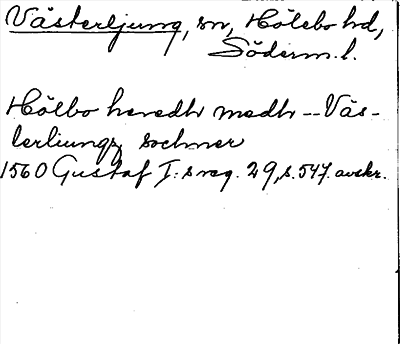 Västerljung, sn, Hölebo hd,
Söderm. l.
Hölbo heredh medh -- Väs-
terliungz sochner
1560 Gustaf I:s reg. 29, s. 547. avskr.